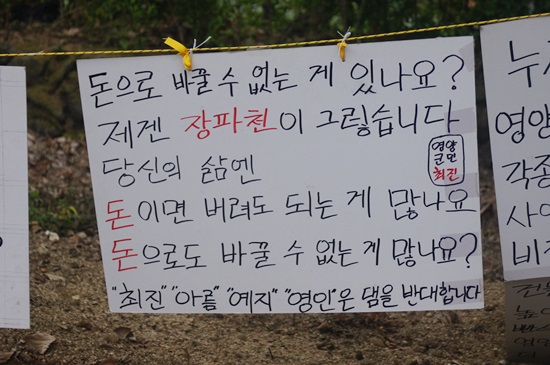 돈으로 바꿀 수 없는 게 있나요?
제겐 장파천이 그렇습니다
당신의 삶엔
영양
군민
최진
돈이면 버려도 되는 게 많나요
돈으로도 바꿀 수 없는 게 많나요?
"최진" "아름" "예지" "영인"은 댐을 반대합니다
누
영양
각종
사
비